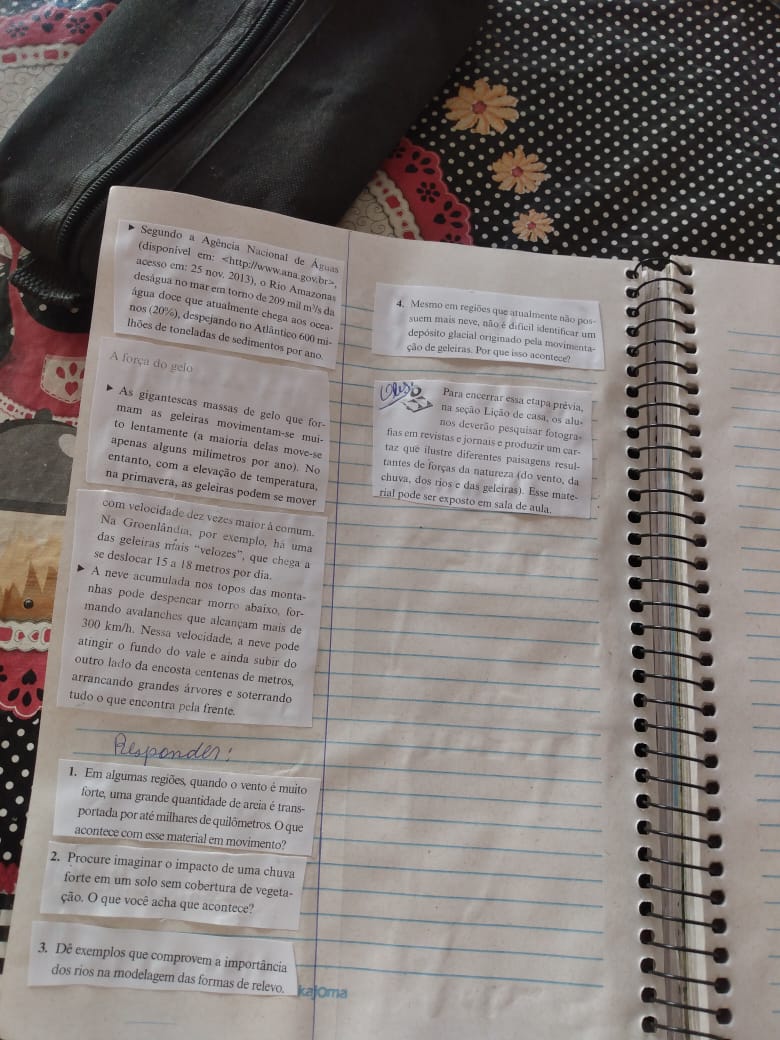 ▸ Segundo a Agência Nacional de Águas
(disponível em: <http://www.ana.gov.br>,
acesso em: 25 nov. 2013), o Rio Amazonas
deságua no mar em torno de 209 mil m³/s da
água doce que atualmente chega aos ocea-
nos (20%), despejando no Atlântico 600 mi-
lhões de toneladas de sedimentos por ano.
A força do gelo
▸ As gigantescas massas de gelo que for-
mam as geleiras movimentam-se mui-
to lentamente (a maioria delas move-se
apenas alguns milímetros por ano). No
entanto, com a elevação de temperatura,
na primavera, as geleiras podem se mover
com velocidade dez vezes maior à comum.
Na Groenlândia, por exemplo, há uma
das geleiras mais “velozes”, que chega a
se deslocar 15 a 18 metros por dia.
▸ A neve acumulada nos topos das monta-
nhas pode despencar morro abaixo, for-
mando avalanches que alcançam mais de
300 km/h. Nessa velocidade, a neve pode
atingir o fundo do vale e ainda subir do
outro lado da encosta centenas de metros,
arrancando grandes árvores e soterrando
tudo o que encontra pela frente.
Responder:
1. Em algumas regiões, quando o vento é muito
forte, uma grande quantidade de areia é trans-
portada por até milhares de quilômetros. O que
acontece com esse material em movimento?
2. Procure imaginar o impacto de uma chuva
forte em um solo sem cobertura de vegeta-
ção. O que você acha que acontece?
3. Dê exemplos que comprovem a importância
dos rios na modelagem das formas de relevo.
kajoma
4. Mesmo em regiões que atualmente não pos-
suem mais neve, não é difícil identificar um
depósito glacial originado pela movimenta-
ção de geleiras. Por que isso acontece?
Para encerrar essa etapa prévia,
na seção Lição de casa, os alu-
nos deverão pesquisar fotogra-
fias em revistas e jornais e produzir um car-
taz que ilustre diferentes paisagens resul-
tantes de forças da natureza (do vento, da
chuva, dos rios e das geleiras). Esse mate-
rial pode ser exposto em sala de aula.